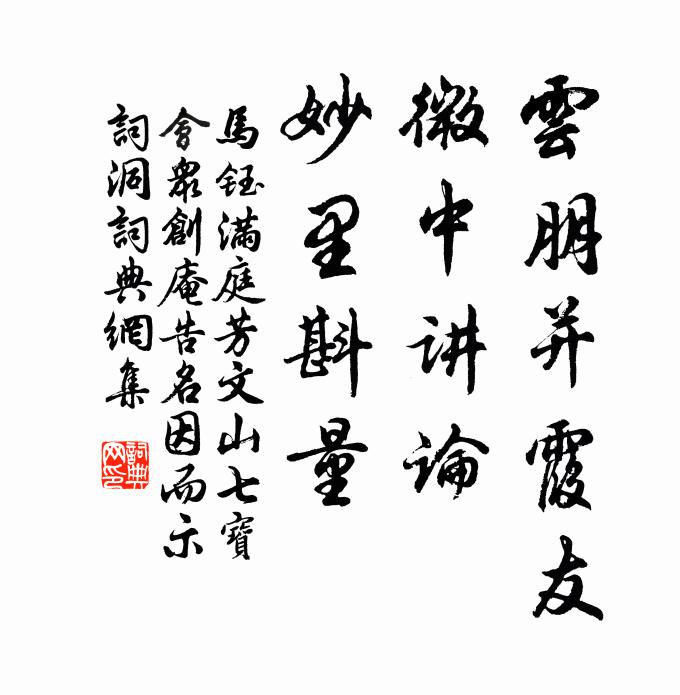 雲朋并霞友
微中讲論
妙里斟量
馬鈺滿庭芳文山七寶
會眾創庵告名因而示
詞洞詞典網集
詞典
网印